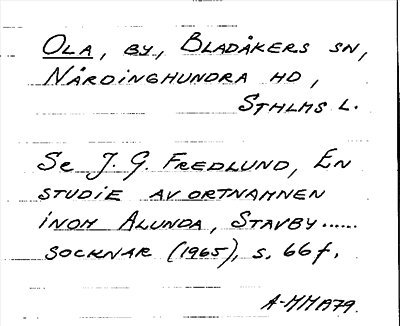 Ola, by, Bladåkers sn,
Närdinghundra hd,
Sthlms l.
Se J. G. Fredlund, En
studie av ortnamnen
inom Alunda, Stavby......
socknar (1965), s. 66 f.
A-MMA79.